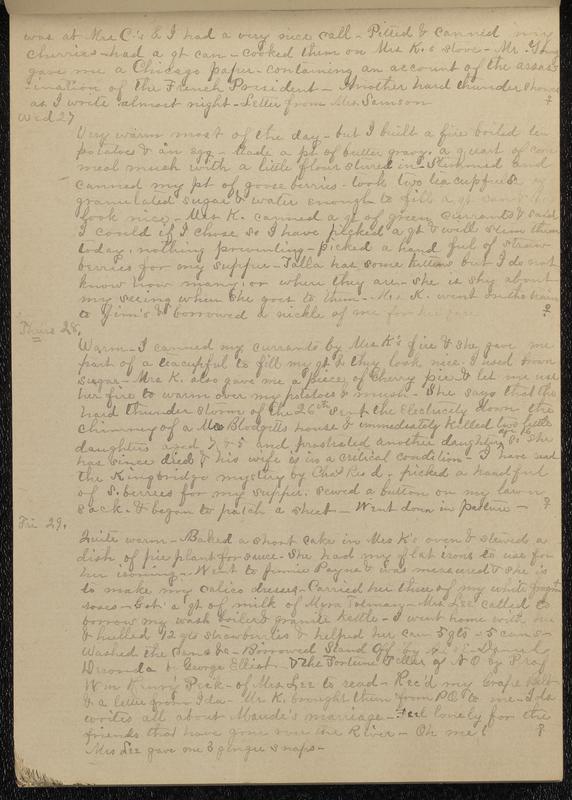 was at Mrs C's & I had a very nice call - Pitted & canned my
cherries - had a qt can - cooked them on Mrs K.s stove - Mr
gave me a Chicago paper - containing an account of the assas
-ination of the French President - Another hard thunder shower
as I write almost night - Letter from Mrs. Samson
Wed 27
Very warm most of the day - but I built a fire boiled ten
potatoes & an egg - Made a pt of butter gravy. a quart of corn
meal mush with a little flour stired in. Stemmed and
canned my pt of gooseberries - took two teacupfuls of
granulated sugar & water enough to fill a qt can &
look nice - Mrs K. canned a qt of green currants & said
I could if I chose so I have picked a qt & will stem them
today, nothing preventing - picked a hand ful of straw
berries for my supper - Talla has some kittens but I do not
know how many, or where they are - she is shy about
my seeing when she goes to them - Mrs K. went on the train
to Jim's & borrowed a nickle of me for her fare
Thurs 28.
Warm - I canned my currants by Mrs K's fire & she gave me
part of a teacupful to fill my qt & they look nice. I used brown
sugar - Mrs K. also gave me a piece of Cherry pie & let me use
her fire to warm over my potatoes & mush - She says that the
hard thunder storm of the 26th sent the Electricity down the
chimney of a Mr Blodgetts house & immediately killed two little
daughters aged 7 & 5 and prostrated another daughter, so she
has since died & his wife is in a critical condition - I have read
the Kingbridge mystery by Chas Reid, picked a handful
of s. berries for my supper. sewed a button on my lawn
sack. & began to patch a sheet - Went down in pasture -
Fri 29.
Quite warm - Baked a short cake in Mrs K's oven & stewed a
dish of pie plant for sauce - She had my flat irons to use for
her ironing - Went to Jennie Payne's & was measured & she is
to make my calico dresses - Carried her three of my white
roses - Got a qt of milk of Myra Tolman - Mrs Lee called to
borrow my wash boiler & granite kettle - I went home with her
& hulled 12 qts strawberries & helped her can 5 qts - 5 cans -
Washed the pans &c - Borrowed Stand Off by Daniel
Deronda & George Elliot - & the Fortune Teller of NO by Prof
Wm Henry Peck - of Mrs Lee to read - Rec'd my Grape Belt
& a letter from Ida - Mr K. brought them from PO to me - Ida
writes all about Maude's marriage - Feel lonely for the
friends that have gone over the River - Oh me!
Mrs Lee gave me 3 ginger snaps -